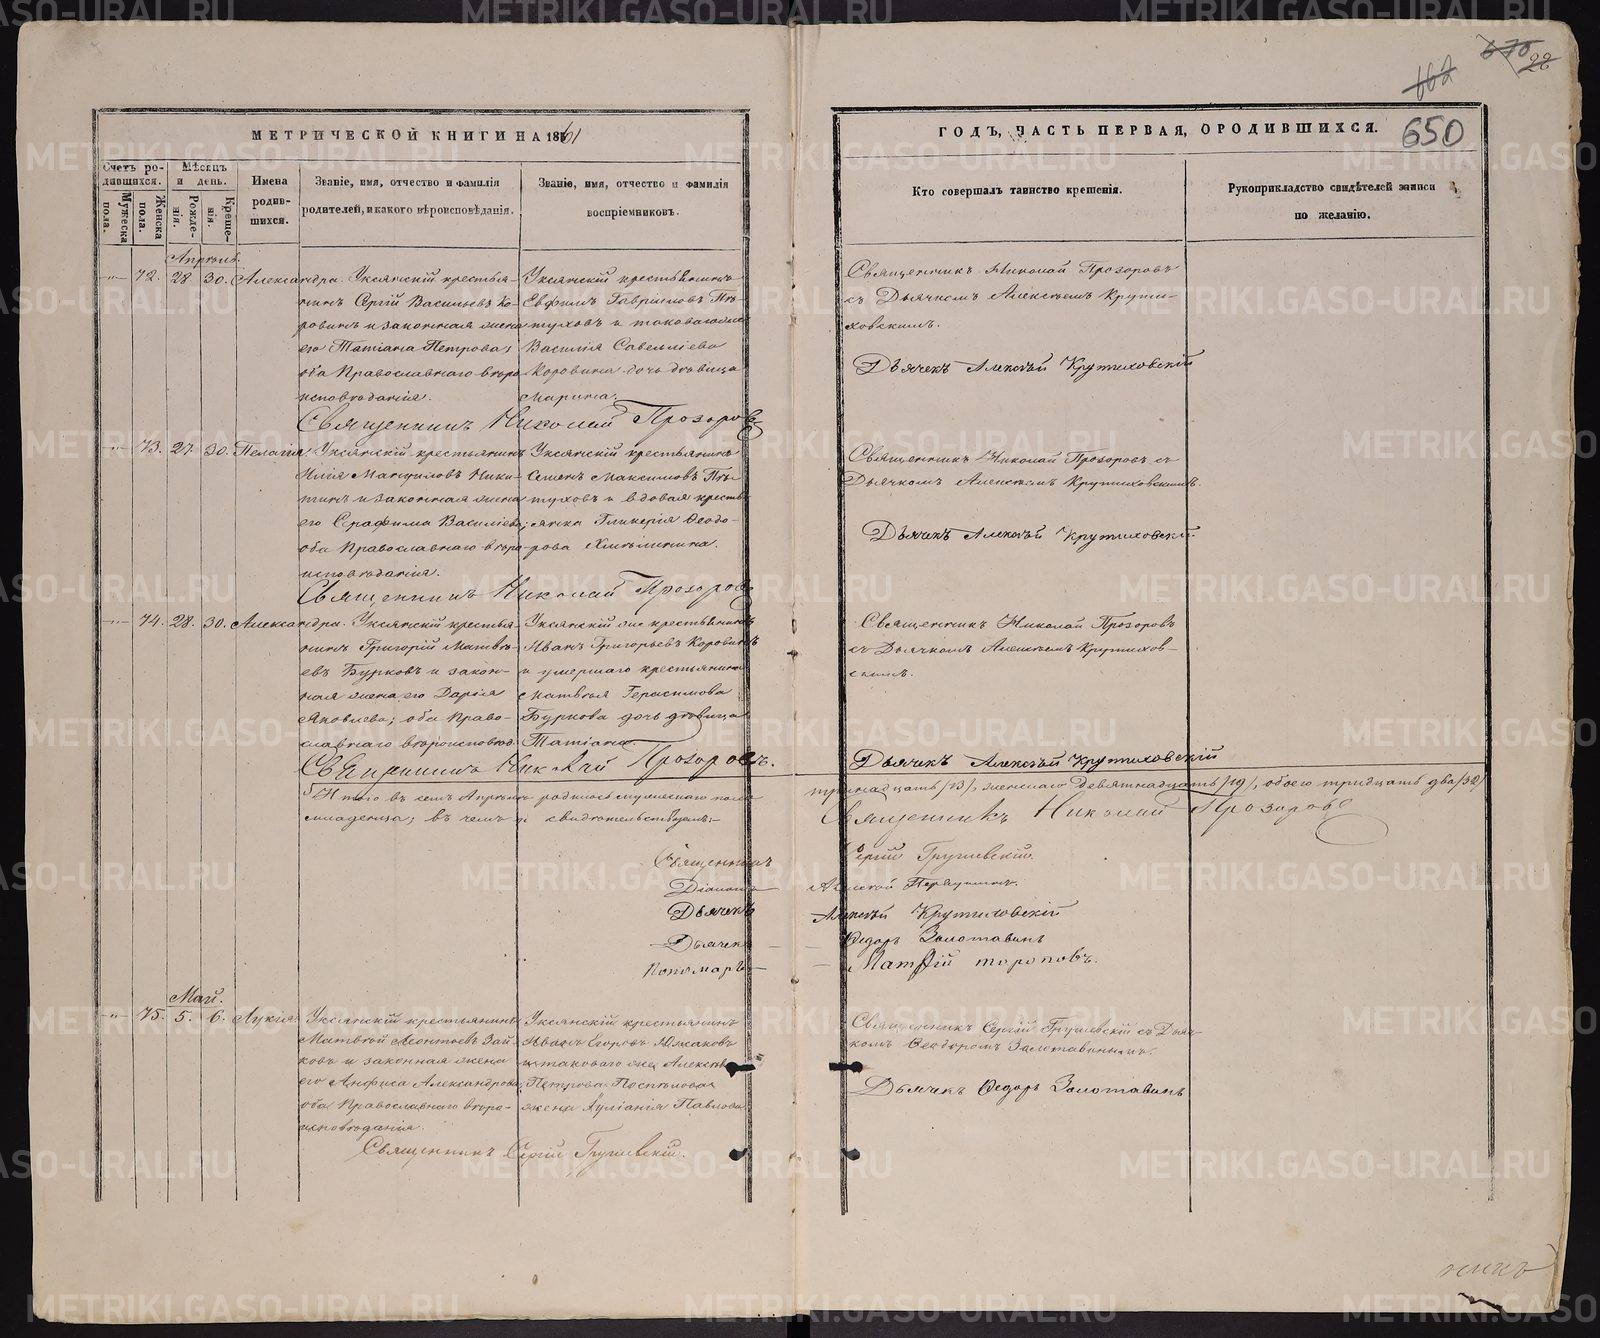 МЕТРИЧЕСКОЙ КНИГИ НА 1861
ГОДЪ, ЧАСТЬ ПЕРВАЯ, О РОДИВШИХСЯ.
650
Счетъ родившихся.
Мужеска пола.
Женска пола.
Мѣсяцъ и день.
Рожденія.
Крещенія.
Имена родившихся.
Званіе, имя, отчество и фамилія
родителей, и какого вѣроисповѣданія.
Званіе, имя, отчество и фамилія
воспріемниковъ.
Кто совершалъ таинство крещенія.
Рукоприкладство свидѣтелей записи
по желанію.
Апрѣль.
72. 28. 30. Александра.
Уксянскій крестья-
нинъ Сергій Васильевъ Ко-
ровинъ и законная жена
его Татіана Петрова;
оба Православнаго вѣро
исповѣданія.
Уксянскій крестьянинъ
Евфимъ Гавриловъ Пѣ-
туховъ и таковагоже
Василія Савелліева
Коровина дочь дѣвица
Марина.
Священникъ Николай Прозоровъ
Священникъ Николай Прозоровъ
съ Дьячкомъ Алексѣемъ Крути-
ховскимъ.
Дьячекъ Алексѣй Крутиховскій
73. 27. 30. Пелагія.
Уксянскій крестьянинъ
Илія Ники-
тинъ и законная жена
его Серафима Василіева;
оба Православнаго вѣро-
исповѣданія.
Уксянскій крестьянинъ
Семенъ Максимовъ Пѣ-
туховъ и вдовая кресть-
янка Гликерія Ѳеодо-
рова
Священникъ Николай Прозоровъ
Священникъ Николай Прозоровъ съ
Дьячкомъ Алексѣемъ Крутиховскимъ.
Дьячекъ Алексѣй Крутиховскій
74. 28. 30. Александра.
Уксянскій крестья-
нинъ Григорій Матвѣ-
евъ Бурковъ и закон-
ная жена его Дарія
Яковлева; оба Право-
славнаго вѣроисповѣд.
Уксянскій же крестьянинъ
Иванъ Григорьевъ Коровинъ
и умершаго крестьянина
Матвѣя Герасимова
Буркова дочь дѣвица
Татіана.
Священникъ Николай Прозоровъ.
Священникъ Николай Прозоровъ
съ Дьячкомъ Алексѣемъ Крутихов-
скимъ.
Дьячекъ Алексѣй Крутиховскій
Итого въ семъ Апрѣлѣ родилось мужескаго пола
тринадцать /13/, женскаго Девятнадцать /19/, обоего тридцать два /32/
младенца; въ чемъ и свидѣтельствуемъ:—
Священникъ Николай Прозоровъ
Священникъ Сергій Грушевскій.
Діаконъ
Дьячекъ Алексѣй Крутиховскій
Дьячекъ Ѳедоръ Золотавинъ
Пономарь Матѳій Тороповъ.
Май.
75. 5. 6. Лукія.
Уксянскій крестьянинъ
Матвѣй Леонтьевъ Зай-
ковъ и законная жена
его Анфиса Александрова;
оба Православнаго вѣро-
исповѣданія.
Уксянскій крестьянинъ
Иванъ Егоровъ Южаковъ
и таковаго же
Петрова Поспѣлова
жена Іуліанія Павлова.
Священникъ Сергій Грушевскій.
Священникъ Сергій Грушевскій съ Дьяч-
комъ Ѳеодоромъ Золотавинымъ.
Дьячекъ Ѳедоръ Золотавинъ
METRIKI.GASO-URAL.RU